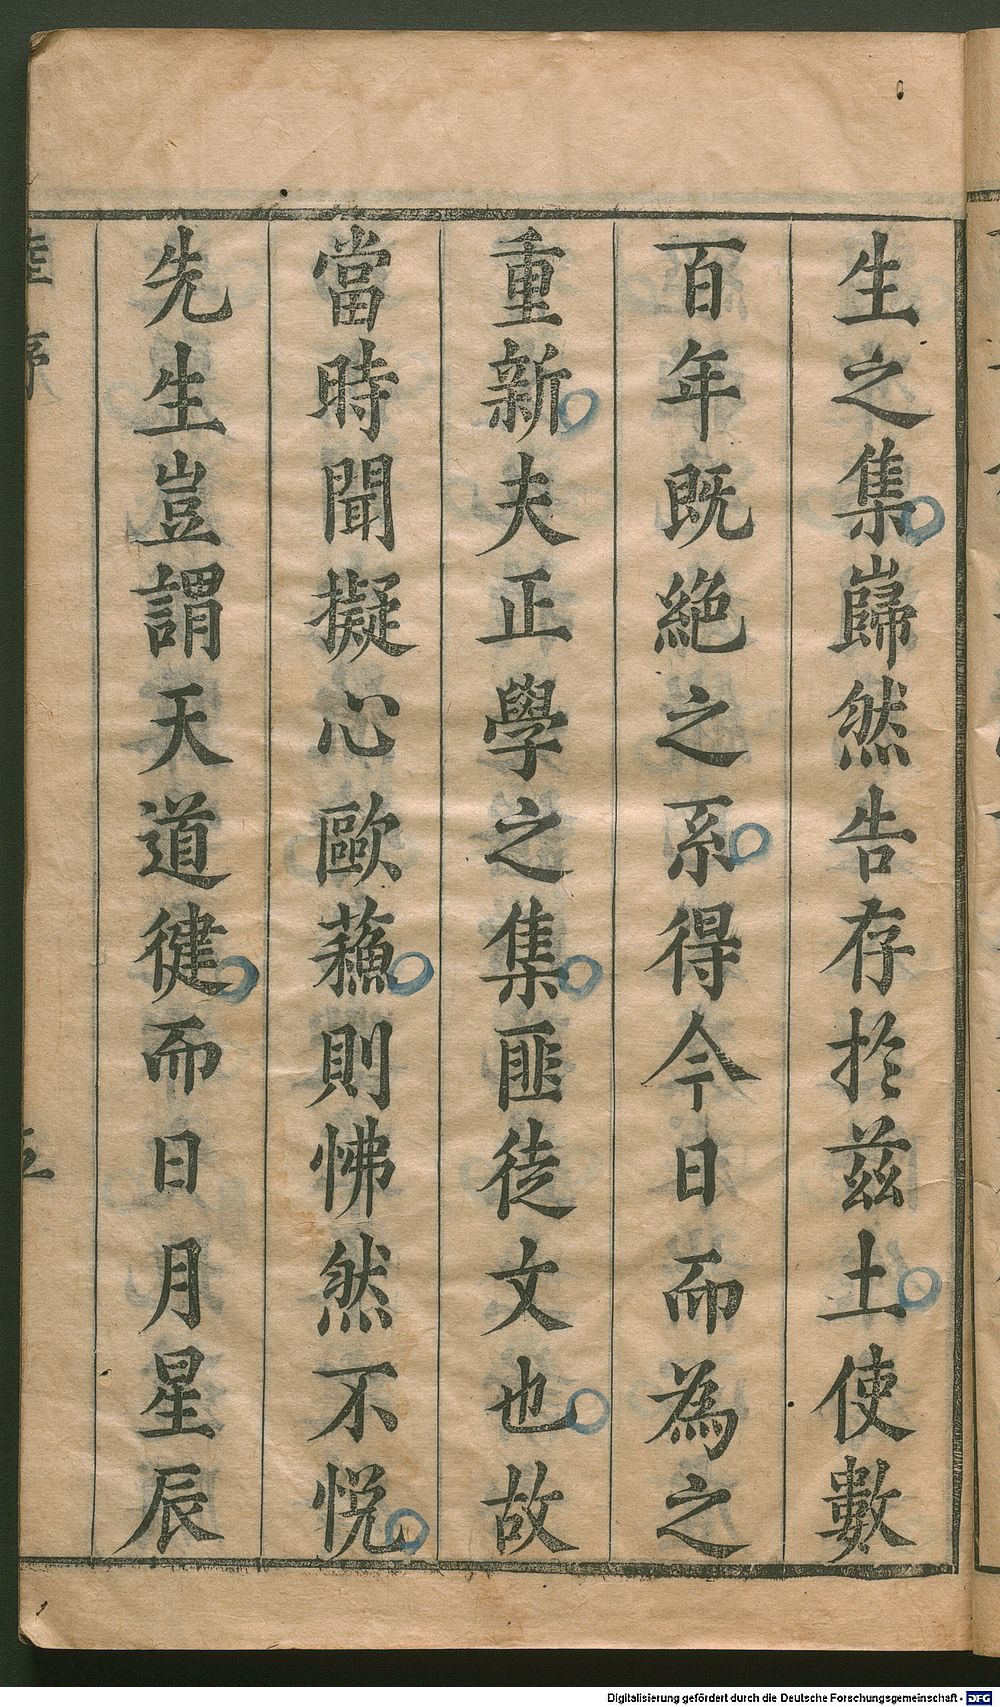 生之集巋然告存於兹土使數
百年既絶之系得今日而為之
重新夫正學之集匪徒文也故
當時聞擬心歐蘓則怫然不悦
先生豈謂天道健而日月星辰
序
五
Digitalisierung gefördert durch die Deutsche Forschungsgemeinschaft - DFG